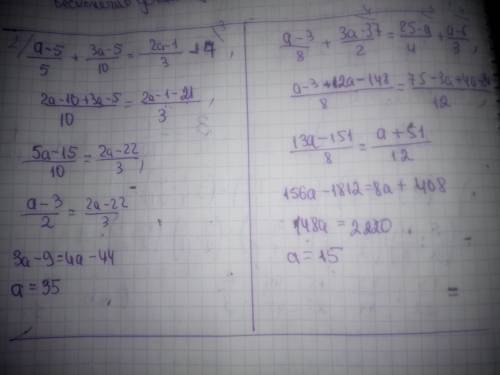 2) (a-5)/5 + (3a-5)/10 = (2a-1)/3 + 7,
(2a-10+3a-5)/10 = (2a-1-21)/3,
(5a-15)/10 = (2a-22)/3,
(a-3)/2 = (2a-22)/3
3a-9=4a-44
a=35
(a-3)/8 + (3a-37)/2 = (25-a)/4 + (a-6)/3,
(a-3+12a-148)/8 = (75-3a+4a-24)/12
(13a-151)/8 = (a+51)/12
156a-1812=8a+408
148a=2220
a=15
=